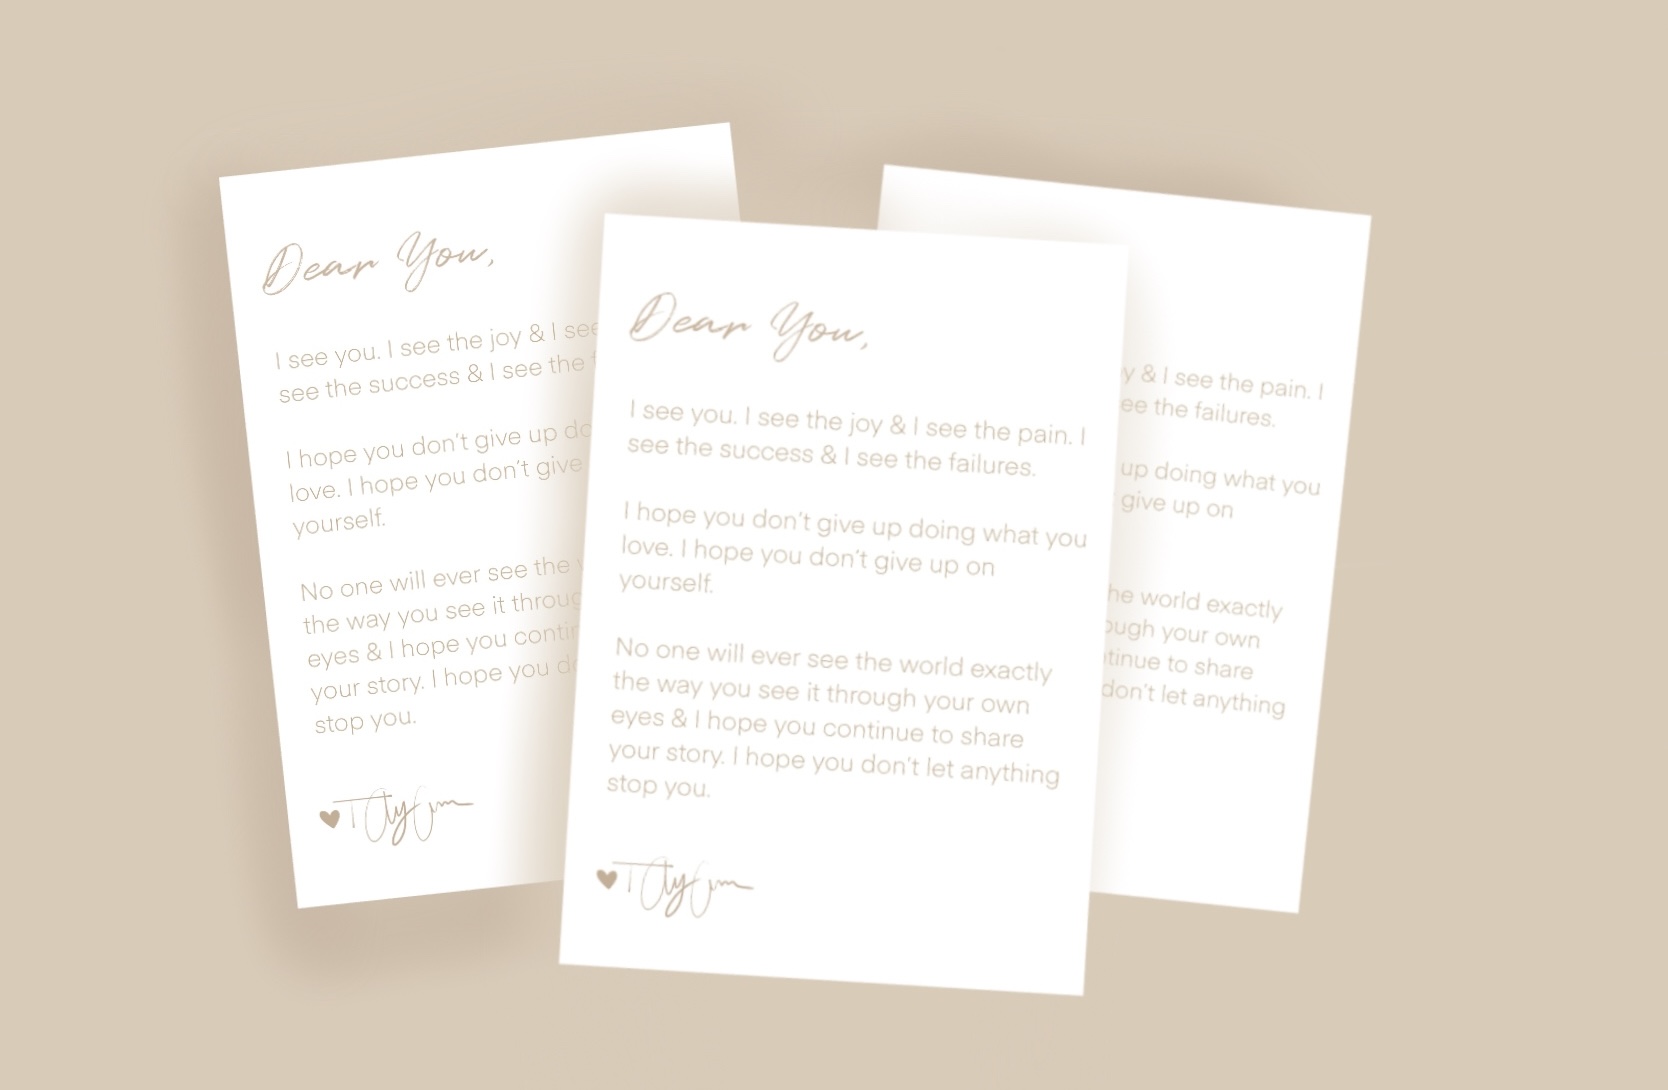 Dear You,
I see you. I see the joy & I see
see the success & I see the
I hope you don't give up
love. I hope you don't give
yourself.
No one will ever see the
the way you see it
eyes & I hope you
your story. I hope you
stop you.
Dear You,
I see you. I see the joy & I see the pain. I
see the success & I see the failures.
I hope you don't give up doing what you
love. I hope you don't give up on
yourself.
No one will ever see the world exactly
the way you see it through your own
eyes & I hope you continue to share
your story. I hope you don't let anything
stop you.
& I see the pain. I
the failures.
up doing what you
give up on
world exactly
your own
to share
don't let anything